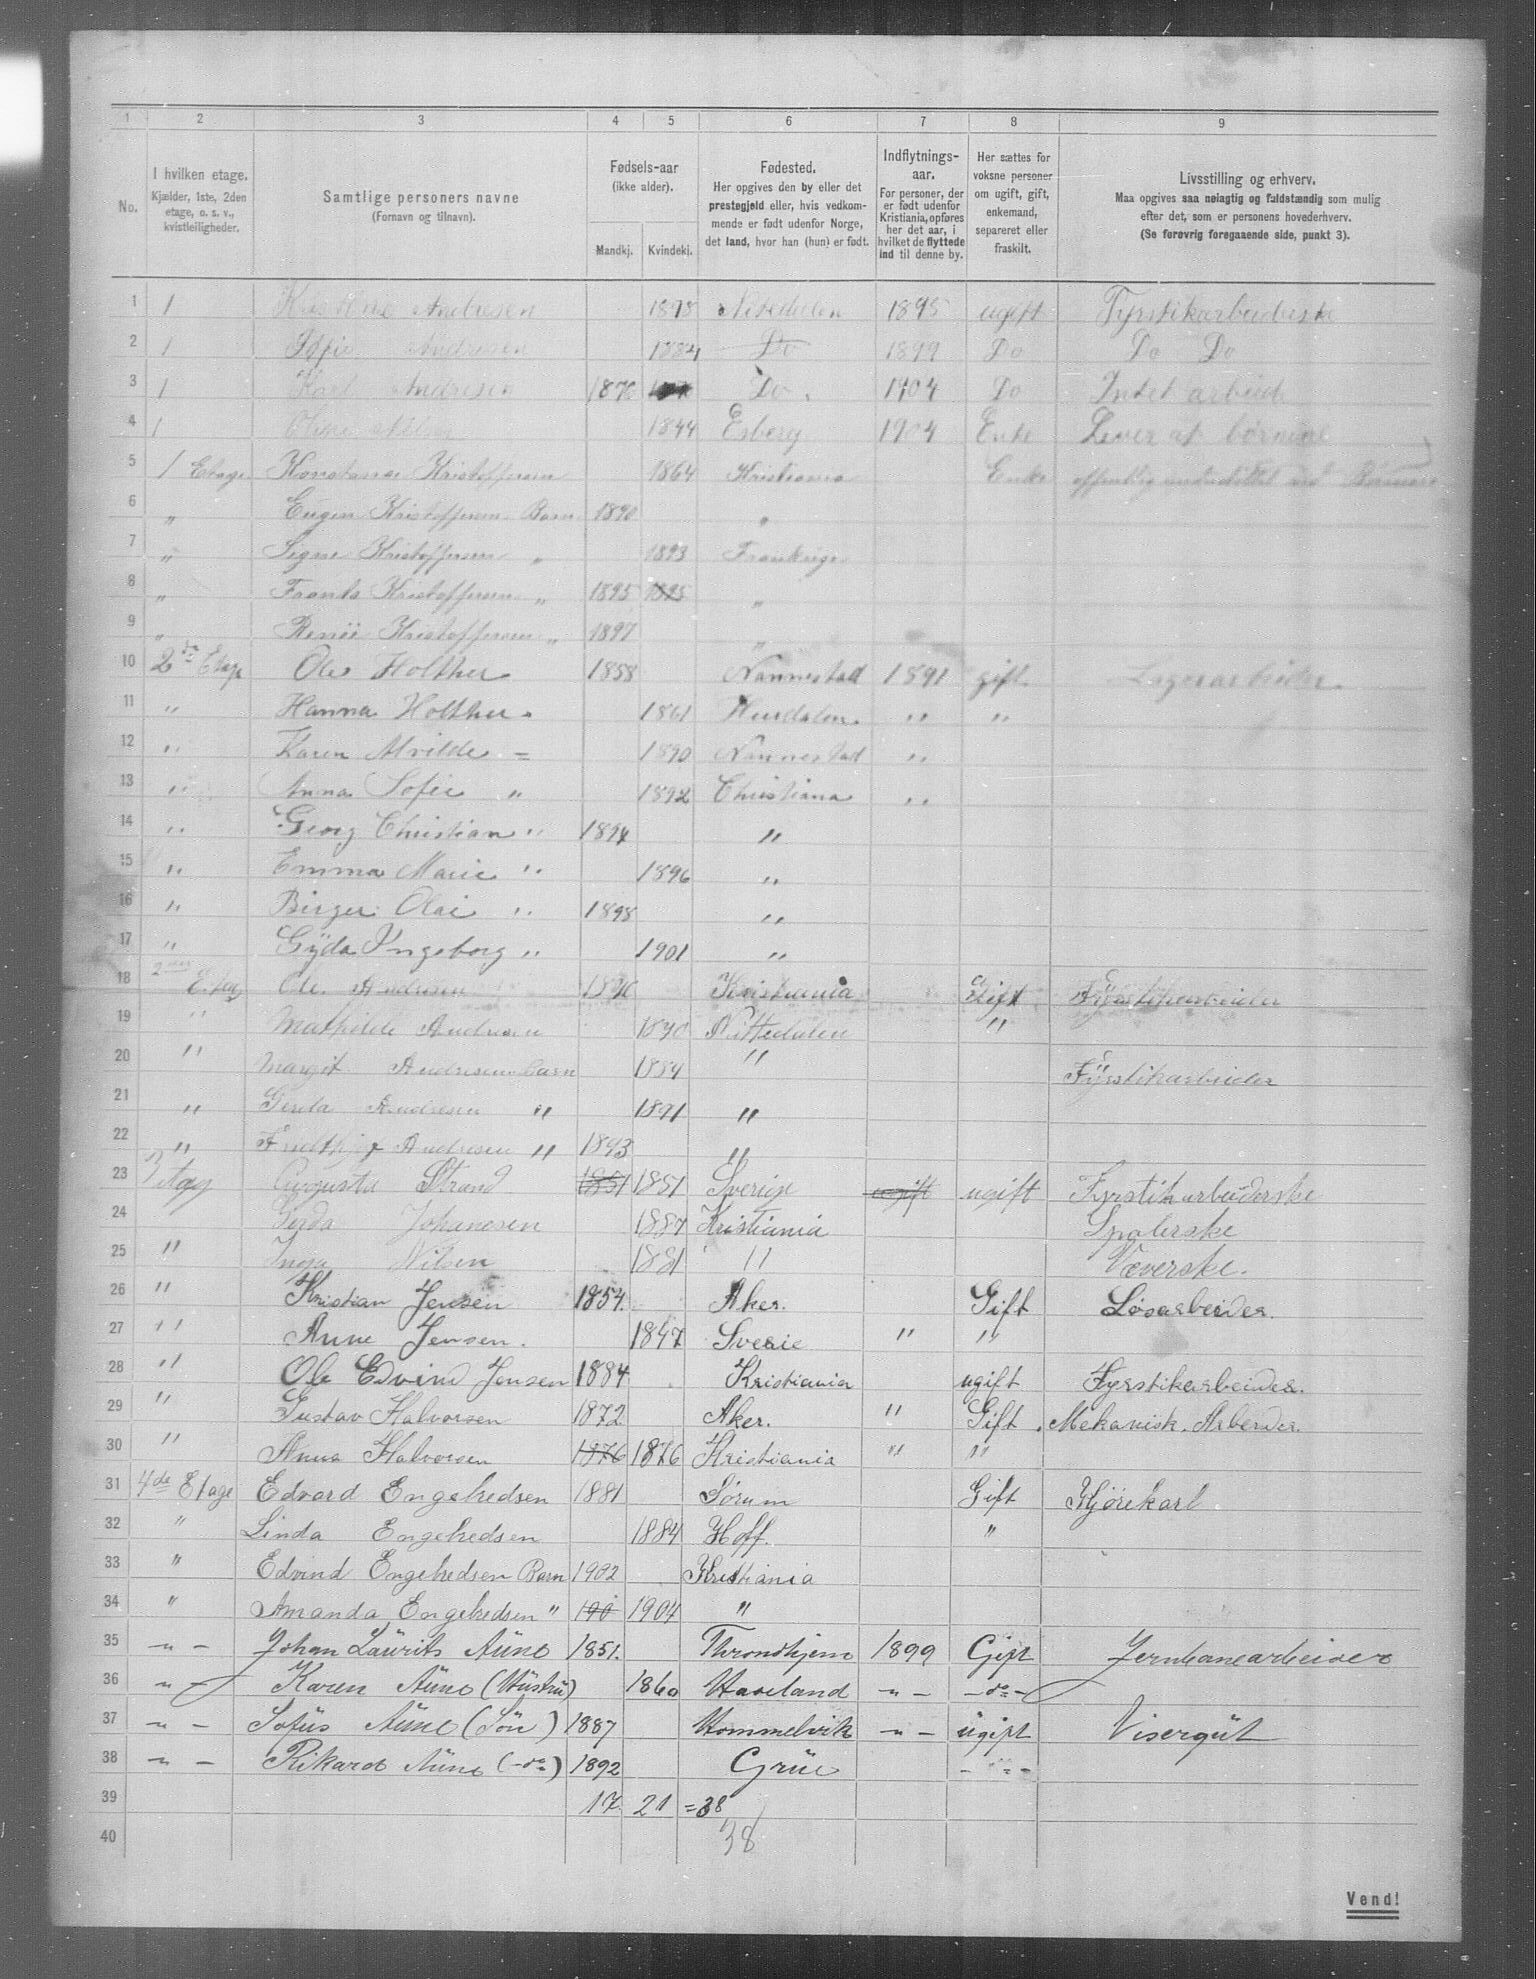 1 2 3 4 5 6 7 8 9
No. I hvilken etage. Kjælder, 1ste, 2den etage, o. s. v., kvistleiligheder. Samtlige personers navne (Fornavn og tilnavn). Fødsels-aar (ikke alder). Mandkj. Kvindekj. Fødested. Her opgives den by eller det prestegjeld eller, hvis vedkommende er født udenfor Norge, det land, hvor han (hun) er født. Indflytnings-aar. For personer, der er født udenfor Kristiania, opføres her det aar, i hvilket de flyttede ind til denne by. Her sættes for voksne personer om ugift, gift, enkemand, separeret eller fraskilt. Livsstilling og erhverv. Maa opgives saa nøiagtig og fuldstændig som mulig efter det, som er personens hovederhverv. (Se forøvrig foregaaende side, punkt 3).
1 1 Andresen Nitedalen 1895 ugift Fyrstikarbeiderske
2 1 Andresen 1884 Do 1899 Do Do Do
3 1 Karl Andresen 1876 Do. 1904 Do Intet arbeide
4 1 1844 Esberg 1904 Enke Lever af børnene
5 1 Etage Konstanse Kristoffersen 1864 Kristiania Enke
6 " Eugen Kristoffersen Barn 1890 "
7 " Signe Kristoffersen " 1893 Frankrige
8 " Frants Kristoffersen " 1895 1895 "
9 " Kristoffersen " 1897 "
10 2den Etage Ole Holther 1858 Nannestad 1891 gift Lagerarbeider
11 " Hanna Holther 1861 Hurdalen " "
12 " Karen Alvilde = 1890 Nannestad "
13 " Anna Sofie " 1892 Christiana "
14 " Georg Christian " 1894 "
15 " Emma Marie " 1896 "
16 " Birger Olai " 1898 "
17 " Gÿda Yngeborg " 1901 "
18 Etag Ole Andresen Kristiania Gift Fÿrstikarbeider
19 " Mathilde Andresen Nittedalen "
20 " Margit Andresen Barn 1884 " Fÿrstikarbeider
21 " Gerda Andresen " 1891 "
22 " Andresen " 1893 "
23 3 Etag Augusta Strand 1851 1851 Sverige ugift ugift Fyrstikarbeiderske
24 Gerda Johannesen 1887 Kristiania Spolerske
25 " Inga Nilsen 1881 " Væverske.
26 " Kristian Jensen 1854. Aker. Gift Løsarbeider.
27 " Anne Jensen. 1847 Sverie " "
28 " Ole Edvind Jensen 1884 Kristiania ugift Fyrstikarbeider.
29 " Gustav Halvorsen 1872 Aker. " Gift. Mekanisk. Arbeider.
30 " Anna Halvorsen 1876 1876 Kristiania " "
31 4de Etage Edvard Engebredsen 1881 Sørum Gift Kjørekarl
32 " Linda Engebredsen 1884 Hoff. "
33 " Edvind Engebredsen Barn 1902 Kristiania
34 " Amanda Engebredsen " 190 1904 "
35 - " - Johan Laürits Aüne 1851. Throndhjem 1899 Gift Jernbanearbeider
36 - " - Karen Aüne (Hüstrü) 1860 Haveland - " - - do -
37 - " - Sofüs Aüne (Sön) 1887 Hommelvik - " - ügift Visergüt
38 - " - Rikard Aüne (- do -) 1892 Grüe - " -
39 17 21 = 38
40 38
Vend!